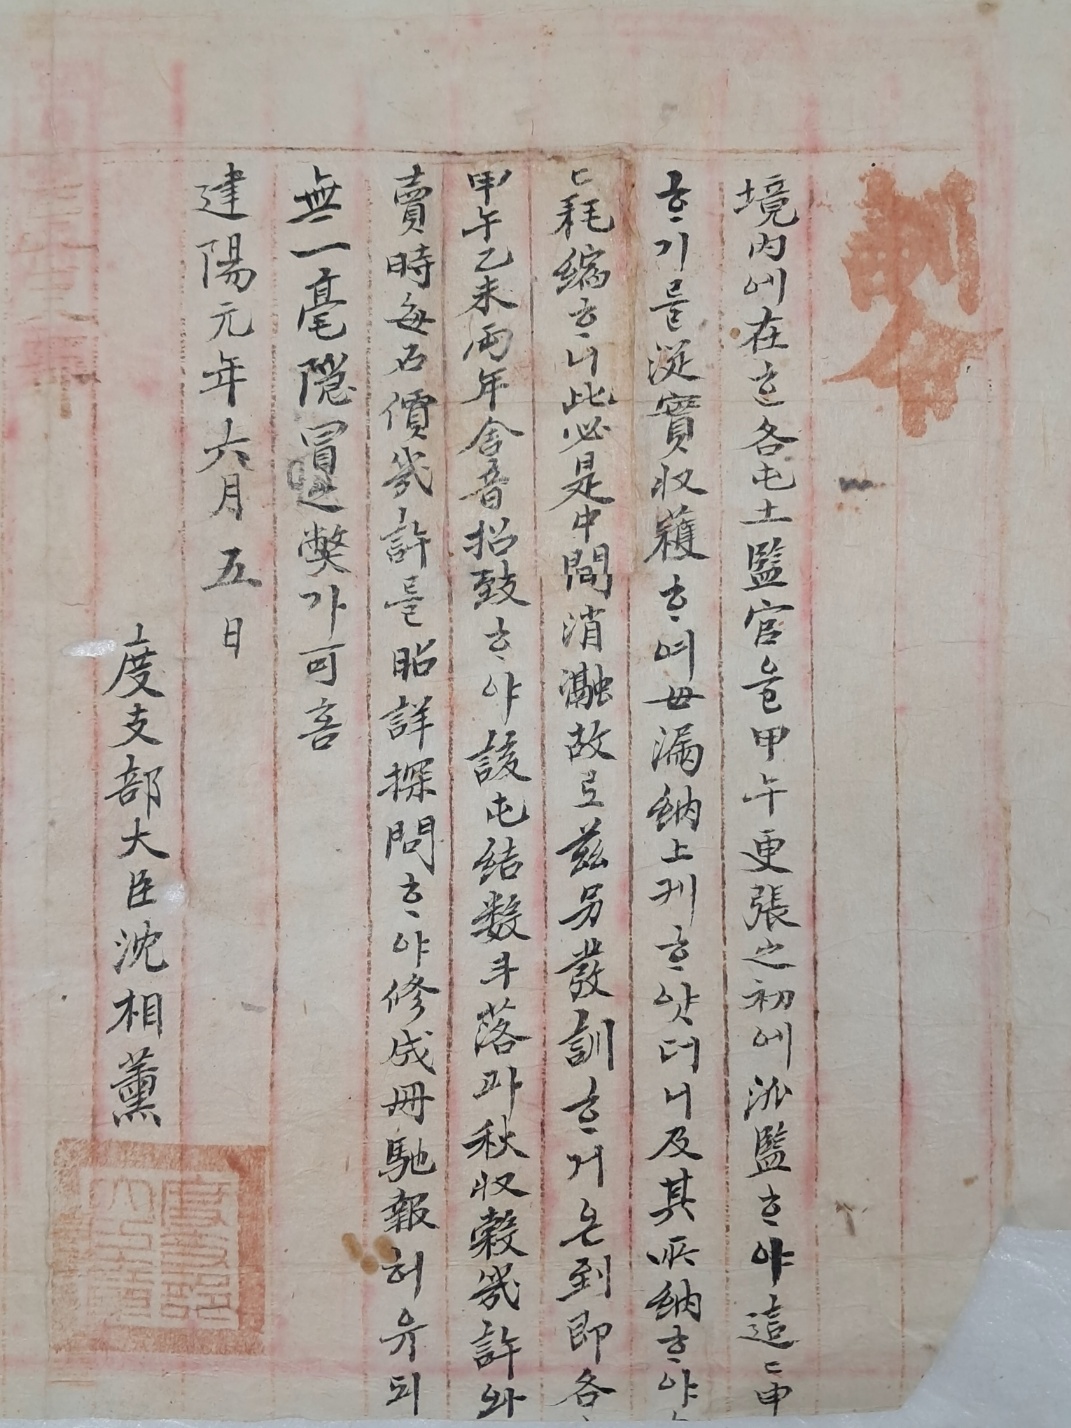 訓令
境内에在ᄒᆞᆫ各屯土監官을甲午更張之初에派監ᄒᆞ야這這申
ᄒᆞ기를從實收穫ᄒᆞ여毋漏納上케ᄒᆞ얏더니及其所納ᄒᆞ야
耗縮ᄒᆞ니此必是中間消瀜故로玆另發訓ᄒᆞ거온到即各
甲午乙未兩年舍音招致ᄒᆞ야該屯結數斗落과秋収穀幾許와
賣時每石價幾許를昭詳探問ᄒᆞ야修成冊馳報허유되
無一毫隠冒之弊가可喜
建陽元年六月五日
度支部大臣沈相薰
度支部大臣章